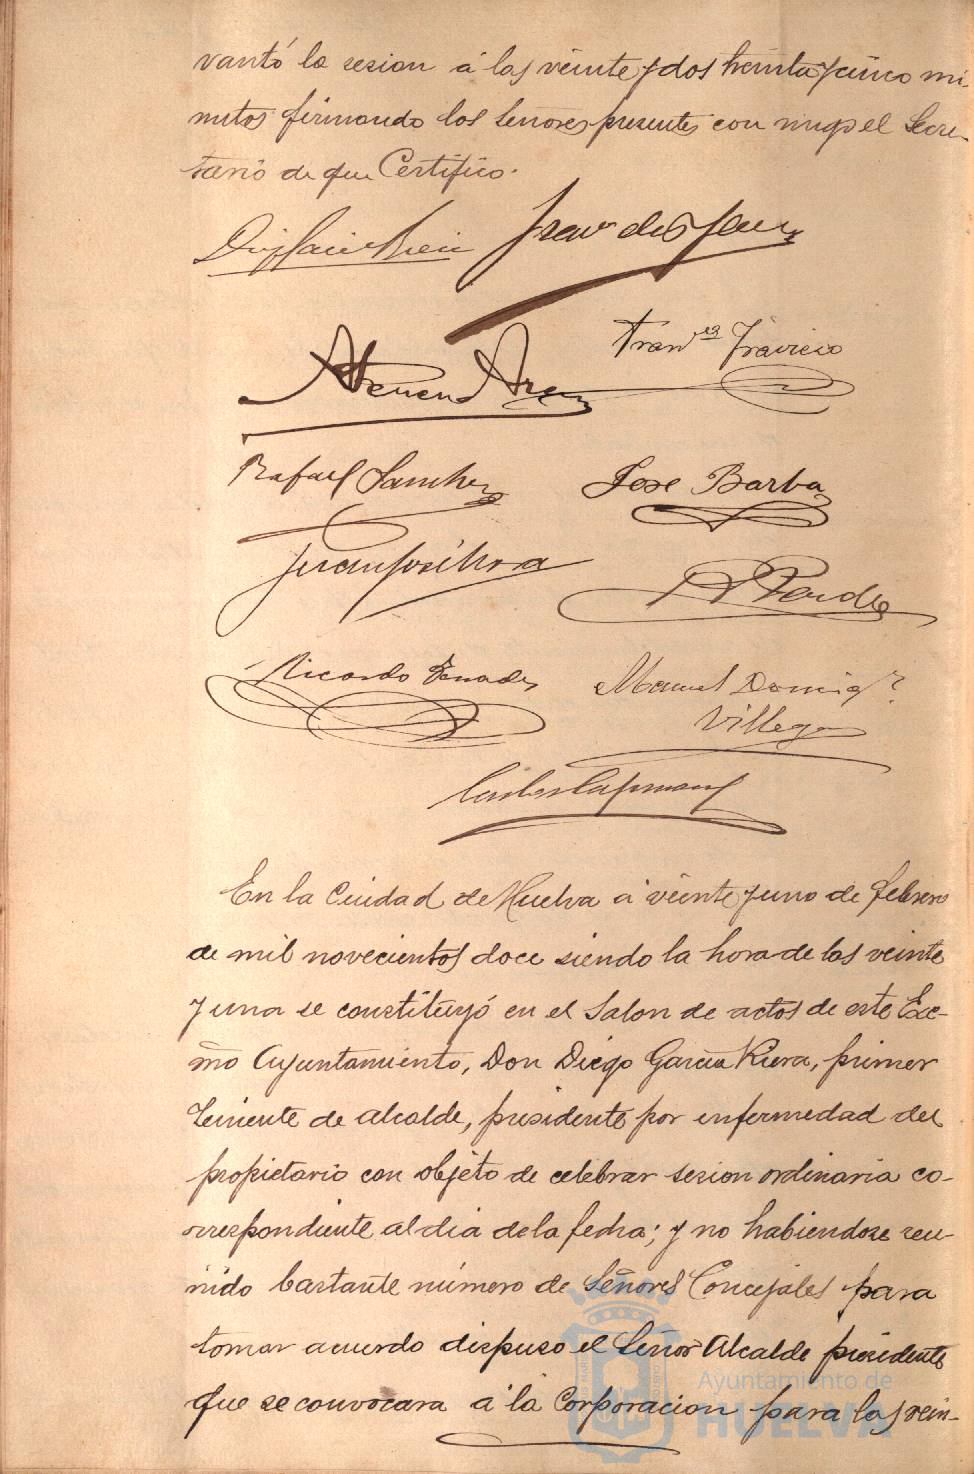 vantó la sesion á las veinte y dos treinta y cinco mi-
nutos firmando los Señores presentes con migo el Secre-
tario de que Certifico.
Rafael Sanchez
José Barba
Juan José Mora
Ricardo Tenades
Manuel Doming.z
Villegas
En la Ciudad de Huelva á veinte y uno de febrero
de mil novecientos doce siendo la hora de las veinte
y una se constituyó en el Salon de actos de este Exc-
mo Ayuntamiento, Don Diego Garcia Riera, primer
Teniente de alcalde, presidente por enfermedad del
propietario con objeto de celebrar sesion ordinaria co-
rrespondiente al dia de la fecha; y no habiendose reu-
nido bastante número de Señores Concejales para
tomar acuerdo dispuso el Señor Alcalde presidente
que se convocara á la Corporacion para las vein-
Ayuntamiento de
HUELVA